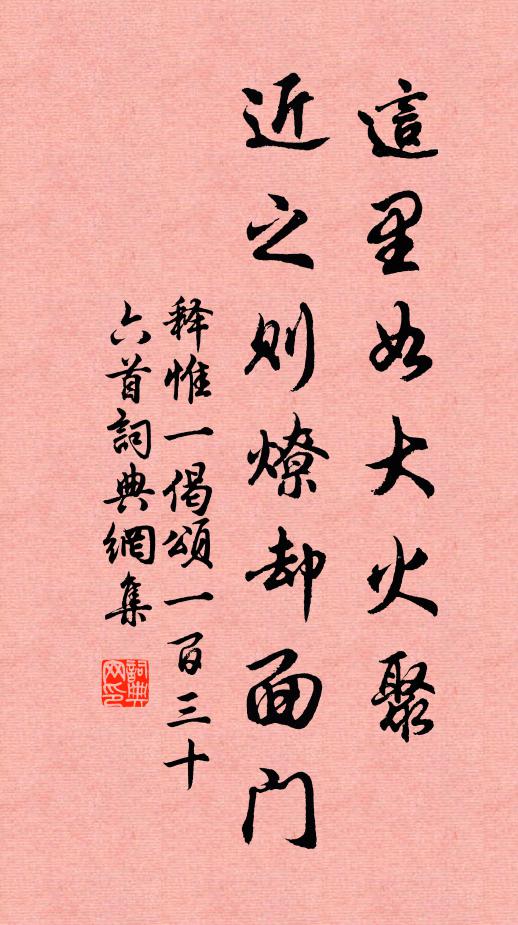 這里如大火聚
近之則燎却面門
释惟一偈頌一百三十
六首詞典網集
詞典
网印